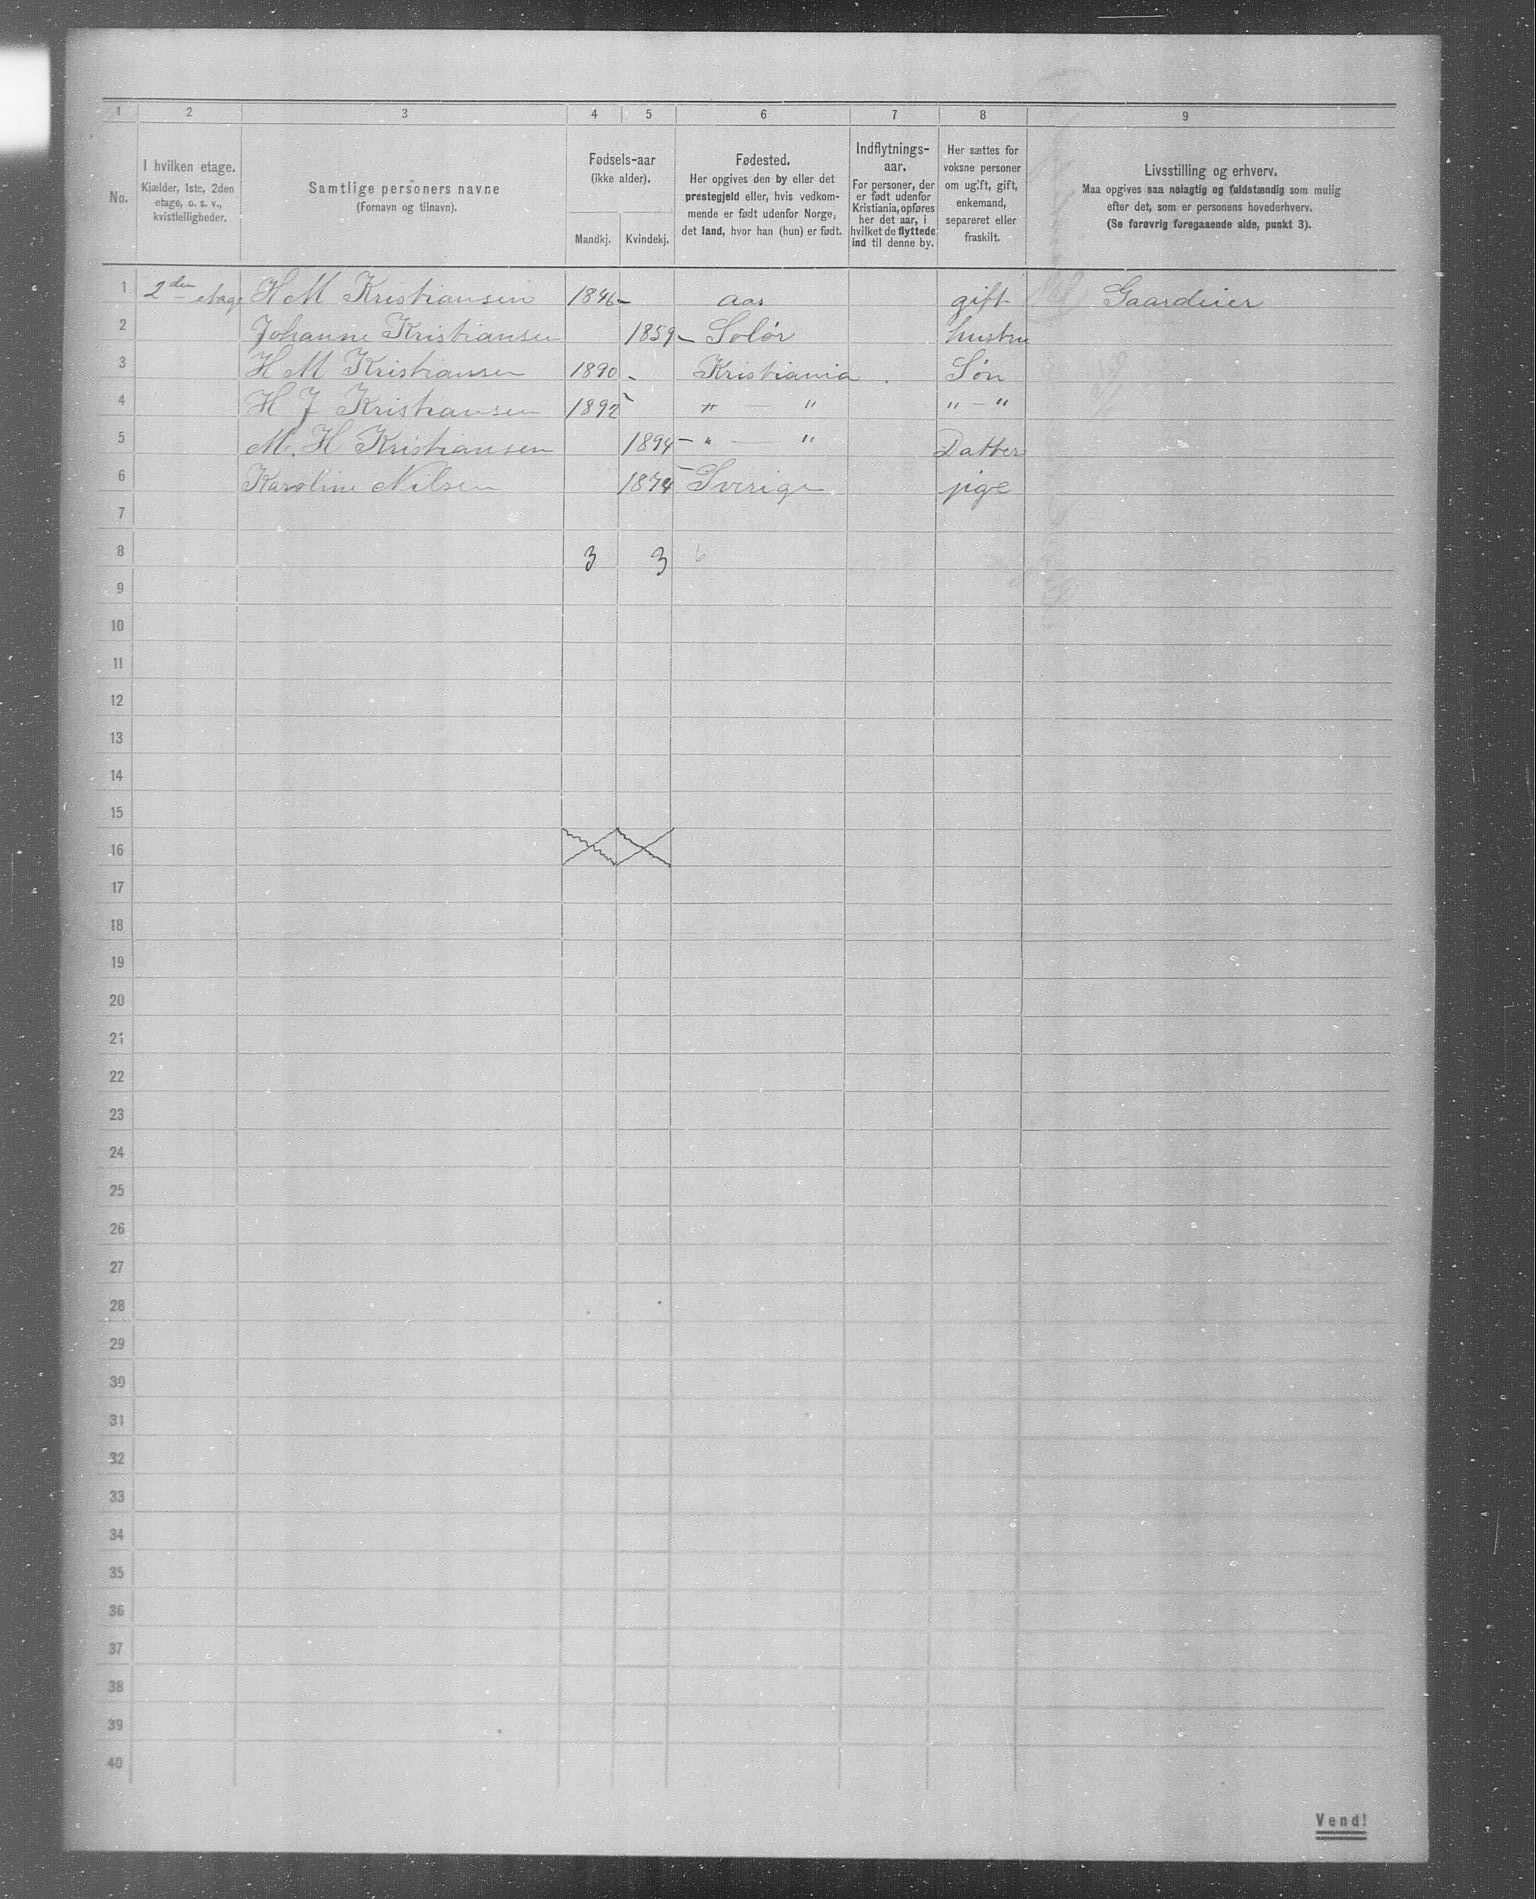 1 2 3 4 5 6 7 8 9
No.
I hvilken etage.
Kjælder, 1ste, 2den
etage, o. s. v.,
kvistleiligheder.
Samtlige personers navne
(Fornavn og tilnavn).
Fødsels-aar
(ikke alder).
Mandkj. Kvindekj.
Fødested.
Her opgives den by eller det
prestegjeld eller, hvis vedkom-
mende er født udenfor Norge,
det land, hvor han (hun) er født.
Indflytnings-
aar.
For personer, der
er født udenfor
Kristiania, opføres
her det aar, i
hvilket de flyttede
ind til denne by.
Her sættes for
voksne personer
om ugift, gift,
enkemand,
separeret eller
fraskilt.
Livsstilling og erhverv.
Maa opgives saa nøiagtig og fuldstændig som mulig
efter det, som er personens hovederhverv.
(Se forøvrig foregaaende side, punkt 3).
1 2den etage H M Kristiansen 1846 – Aas gift Gaardeier
2 Johanne Kristiansen 1859 – Solør hustru
3 H M Kristiansen 1890 – Kristiania Søn
4 H J Kristiansen 1892 – " — " " – "
5 M. H Kristiansen 1894 – " — " Datter
6 Karoline Nilsen 1874 – Sverige pige
7
8 3 3 6
9
10
11
12
13
14
15
16
17
18
19
20
21
22
23
24
25
26
27
28
29
30
31
32
33
34
35
36
37
38
39
40
Vend!